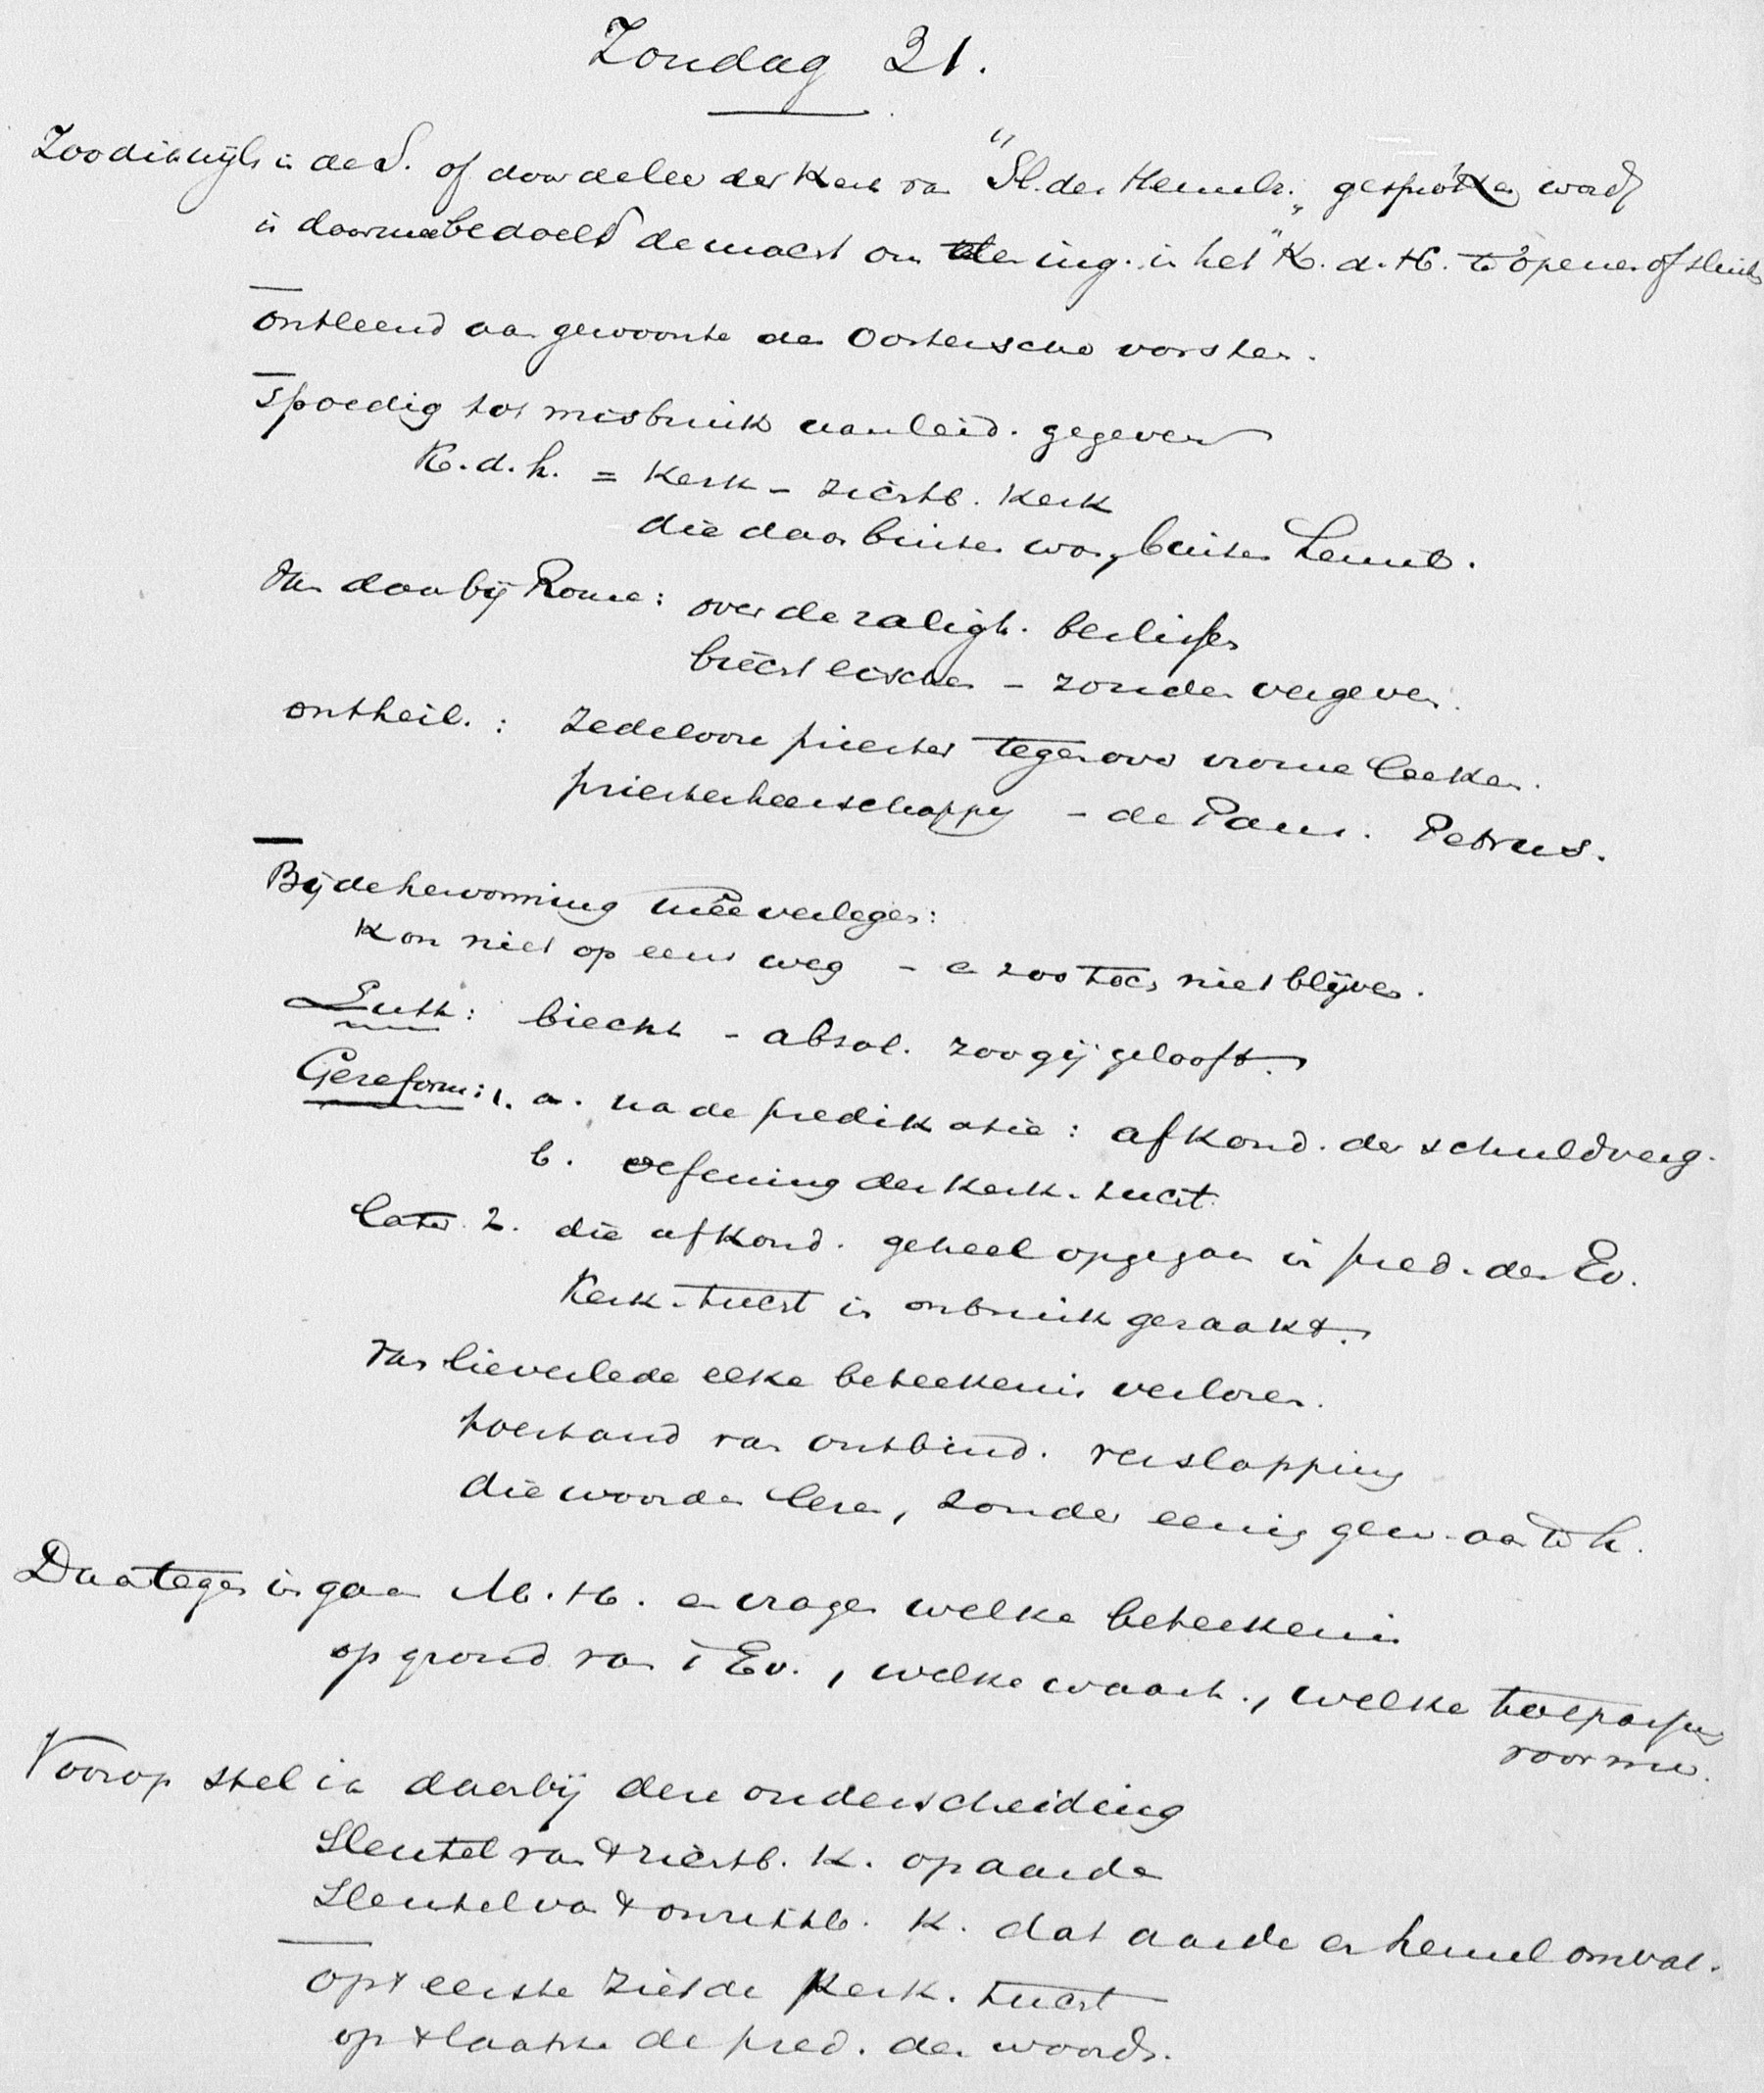 Zondag 31.
Zoodikwijls in de S. of door delee der Kerk van "Sl. der Hemelr." gesproken wordt
is daarmee bedoeld de macht om den ing. in het "K. d. H. te openen of sluiten
ontleend aan gewoonte der Oostersche vorsten.
Spoedig tot misbruik aanleid. gegeven
K. d. h. = Kerk - zichtb. Kerk
die daar buiten was, buiten hemel.
Van daar bij Rome: over de zaligh. beslissen
biecht eischen - zonden vergeven.
ontheil. : Zedeloore priester tegenover vrome leeken.
priesterheerschappy - de Paus. Petrus.
Bij de hervorming mee verlegen:
Kon niet op eens weg - en zoo toch niet blijven.
Luth: biecht - absol. zoo gij gelooft.
Gereform: 1. a. na de predikatie: afkond. der schuldverg.
b. oefening der Kerk. tucht
later 2. die afkond. geheel opgegaan in pred. der Ev.
Kerk. tucht in onbruik geraakt.
Van lieverlede elke beteekenis verloren.
toestand van ontbind. verslapping
die woorden lezen, zonder eenig gew. aan te h.
Daartegen in gaan M. H. en vragen welke beteekenis
op grond van 't Ev., welke waarh., welke toepassing
voor nu.
Voorop stel ik daarbij deze onderscheiding
Sleutel van 't zichtb. K. op aarde
Sleutel van 't onzichtb. K. dat aarde en hemel omvat.
op 't eerste ziet de Kerk. tucht
op 't laatste de pred. des woords.